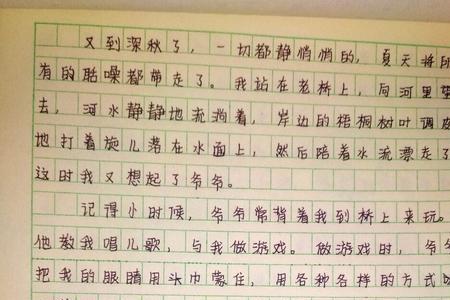 又到深秋了，一切都静悄悄的，夏天将所
有的聒噪都带走了。我站在老桥上，向河里望
去，河水静静地流淌着，岸边的梧桐树叶调皮
地打着旋儿落在水面上，然后陪着水流票走了
这时我又想起了爷爷。
记得小时候，爷爷常背着我到桥上来玩。
他教我唱儿歌，与我做游戏。做游戏时，爷爷
把我的眼睛用头巾蒙住，用各种各样的方式